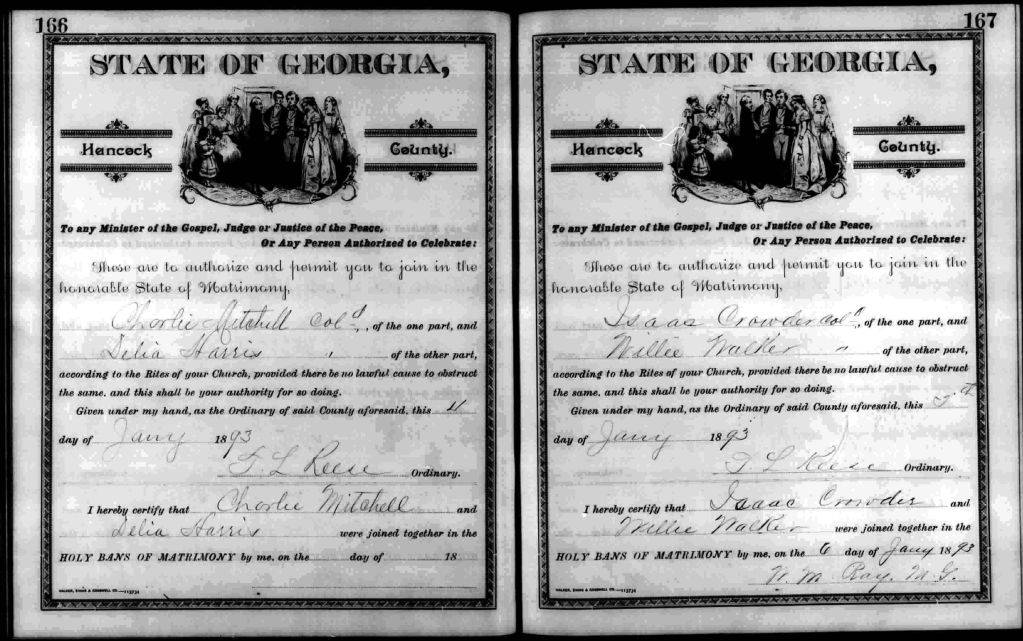 166
STATE OF GEORGIA,
Hancock County.
To any Minister of the Gospel, Judge or Justice of the Peace,
Or Any Person Authorized to Celebrate:
These are to authorize and permit you to join in the
honorable State of Matrimony,
Charlie Mitchell Cold, of the one part, and
Delia Harris " of the other part,
according to the Rites of your Church, provided there be no lawful cause to obstruct
the same, and this shall be your authority for so doing.
Given under my hand, as the Ordinary of said County aforesaid, this 4
day of Jany 1893
T L Reese Ordinary.
I hereby certify that Charlie Mitchell and
Delia Harris were joined together in the
HOLY BANS OF MATRIMONY by me, on the day of 18
WALKER, EVANS & COGSWELL CO.—113734
167
STATE OF GEORGIA,
Hancock County.
To any Minister of the Gospel, Judge or Justice of the Peace,
Or Any Person Authorized to Celebrate:
These are to authorize and permit you to join in the
honorable State of Matrimony,
Isaac Crowder Cold, of the one part, and
Willie Walker " of the other part,
according to the Rites of your Church, provided there be no lawful cause to obstruct
the same, and this shall be your authority for so doing.
Given under my hand, as the Ordinary of said County aforesaid, this
day of Jany 1893
T L Reese Ordinary.
I hereby certify that Isaac Crowder and
Willie Walker were joined together in the
HOLY BANS OF MATRIMONY by me, on the 6 day of Jany 1893
W. M. Ray. M. G.
WALKER, EVANS & COGSWELL CO.—113734